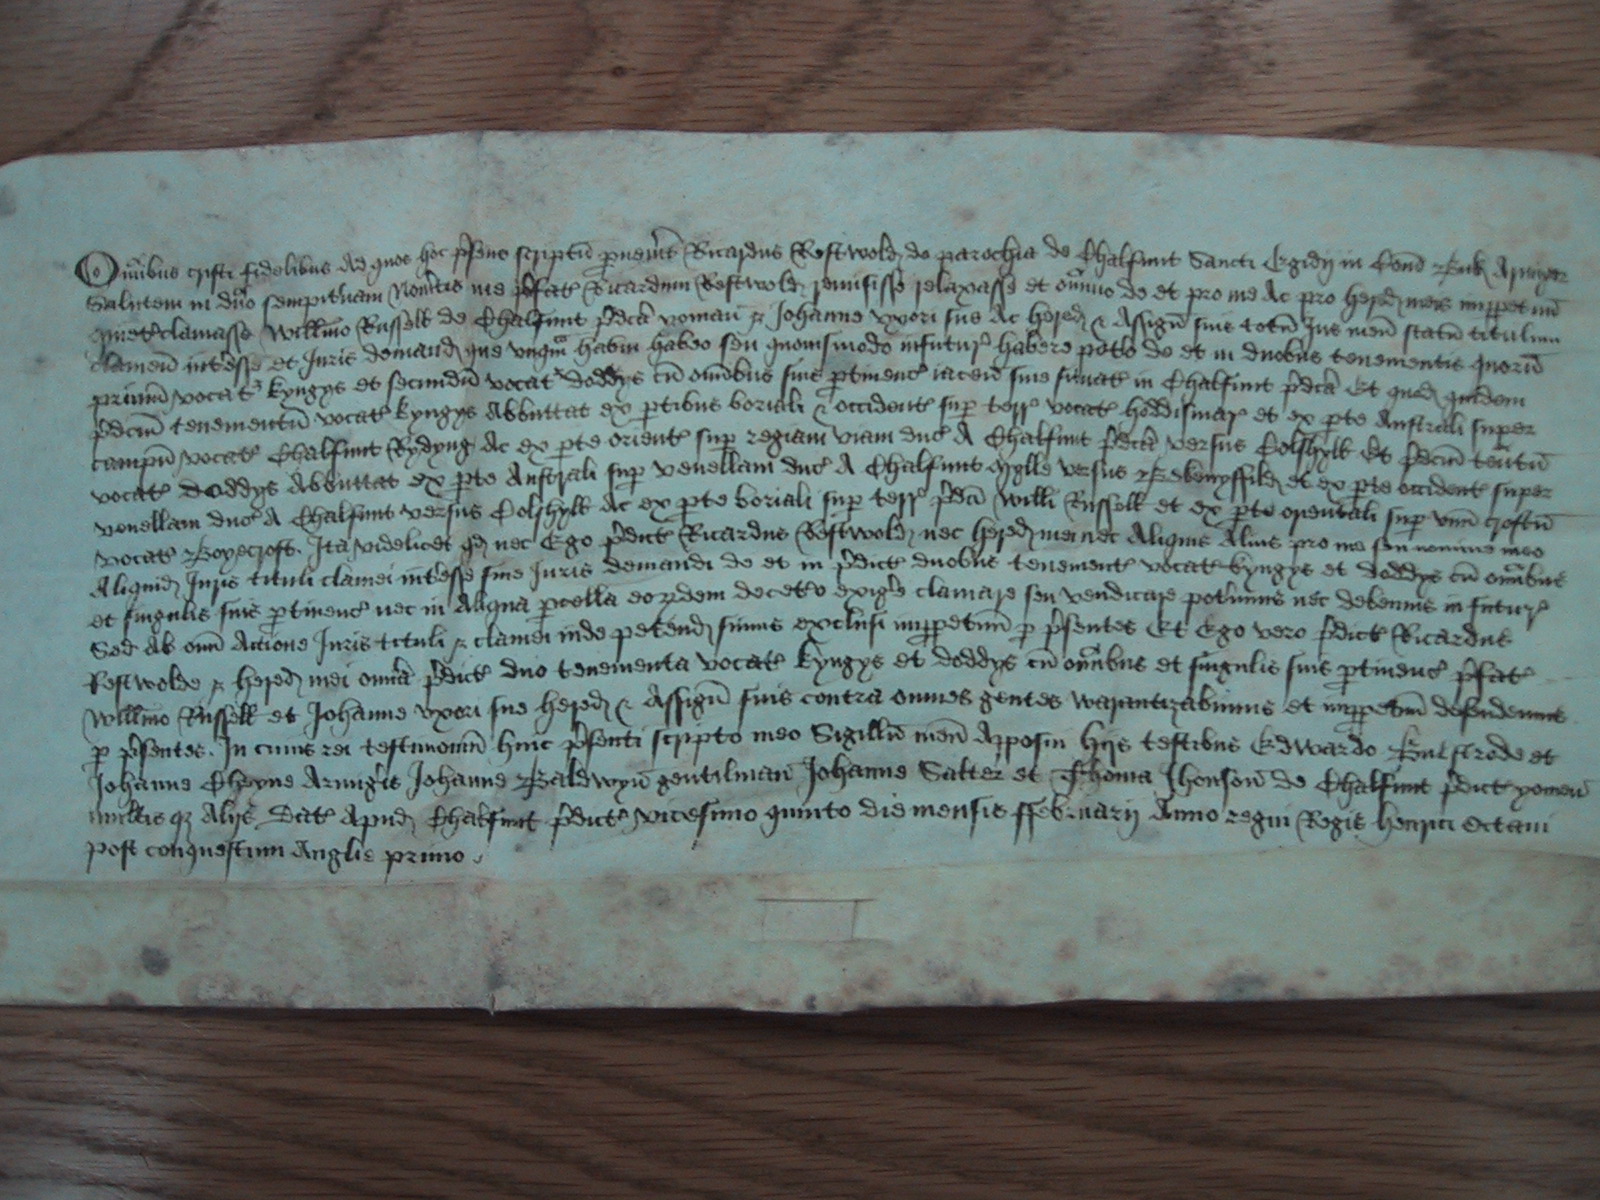 Om̅ibus cristi fidelibus Ad quos hoc p̅sens scriptu̅ p̲uen̅it Ricardus Restwold de parochia de Chalfunt Sancti Egidij in Com̅ Buk Armiger
Salutem in dn̅o sempit̅nam Nou̅itis me p̅fat Ricardum Restwold remisisse relaxasse et om̅ino de et pro me Ac pro hered meis imp̲petuu̅
quiet clamasse Will̅mo Russell de Chalfunt p̅dc̅a yoman̅ & Johanne vxori sue Ac hered & Assign̅ suis totu̅ Jus meu̅ statu̅ titulum
clameu̅ int̅esse et Juris demand que vnq̅m habui habeo seu quouismodo infutur̅ habere pot̅o de et in duobus tenementis quoru̅
primu̅ vocat kyngys et secundu̅ vocat doddys cu̅ om̅ibus suis p̲tinenc iacen̅ siue situat in Chalfunt p̅dc̅a Et quod quidem
p̅dcm̅ tenementu̅ vocat kyngys Abbuttat ex p̲tibus boriali & occident sup̲ terr̅ vocat hoddismar̅ et ex p̲te Australi super
campu̅ vocat Chalfunt Rydyng Ac ex p̲te orient sup̲ regiam viam duc̅ A Chalfunt p̅dc̅a versus Colshyll Et p̅dcm̅ ten̅tu̅
vocat doddys Abbuttat ex p̲te Australi sup̲ venellam duc̅ A Chalfunt Mylle versus et ex p̲te occident super
venellam duc̅ A Chalfunt versus Colshyll Ac ex p̲te boriali sup̲ terr̅ p̅dc̅i Will̅i Russell et ex p̲te orientali sup̲ vnu̅ croftu̅
vocat Boyecroft. Ita videlicet qd nec Ego p̅dict Ricardus Restwold nec hered mei nec Aliquis Alius pro me seu nomine meo
Aliquid Juris tituli clamei int̅esse siue Juris demandi de et in p̅dict duobus tenement vocat kyngys et doddys cu̅ om̅ibus
et singulis suis p̲tinenc nec in Aliqua p̲cella eor̅dem decet̅o exig̅e clamare seu vendicare pot̅imus nec debemus in futur̅
Sed Ab om̅i Actione Juris tituli & clamei inde petend simus exclusi imp̲petuu̅ p̲ p̅sentes Et Ego vero p̅dict Ricardus
Restwolde & hered mei om̅ia p̅dict duo tenementa vocat kyngys et doddys cu̅ om̅ibus et singulis suis p̲tinenc p̅fat
Will̅mo Russell et Johanne vxori sue hered & Assign̅ suis contra omnes gentes warantizabimus et imp̲petuu̅ defendemus
p̲ p̅sentes. In cuius rei testimoniu̅ huic p̅senti scripto meo Sigillu̅ meu̅ Apposui hijs testibus Edwardo Bulstrode et
Johanne Cheyne Armig̅is Johanne Baldwyn̅ gentilman̅ Johanne Salter et Thoma Jhonson̅ de Chalfunt p̅dict yomen̅
multis q̲ Alijs Dat Apud Chalfunt p̅dict vicesimo quinto die mensis ffebruarij Anno regni Regis henrici Octaui
post conquestum Anglie primo